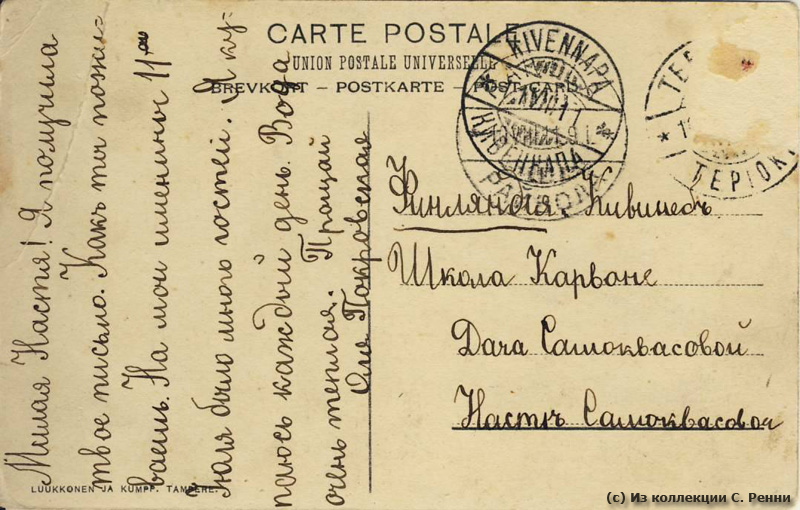 CARTE POSTALE
UNION POSTALE UNIVERSELLE
BREVKORT – POSTKARTE – POST CARD
KIVENNAPA
КИВЕННАПА
РАЙВОЛА
ТЕРІОКИ
Милая Настя! Я получила
твое письмо. Какъ ты пожи-
ваешь. На мои именины 11го
Іюля было много гостей. Я ку-
паюсь каждый день. Вода
очень теплая. Прощай
Оля Покровская
Финляндія Кивинебъ
Школа Карване
Дача Самоквасовой
Настѣ Самоквасовой
LUUKKONEN JA KUMPP. TAMPERE.
(c) Из коллекции С. Ренни